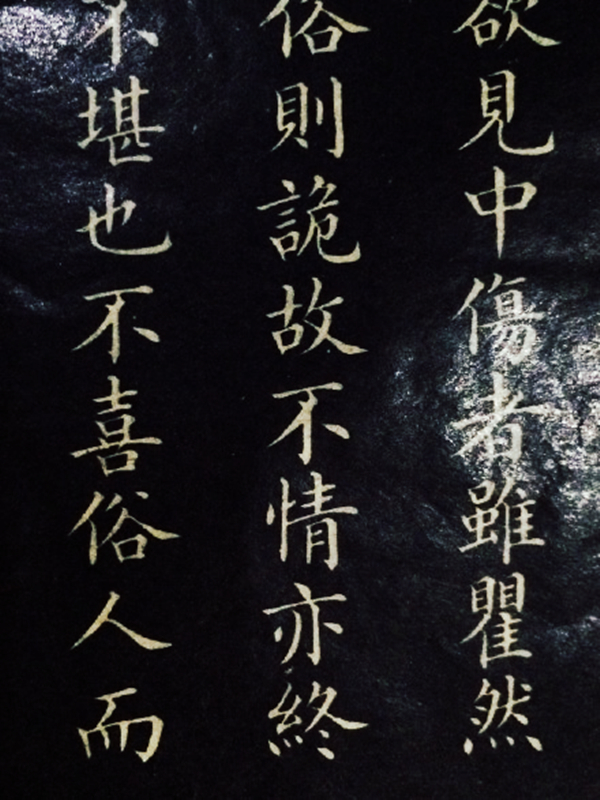 欲見中傷者雖瞿然
俗則詭故不情亦終
不堪也不喜俗人而